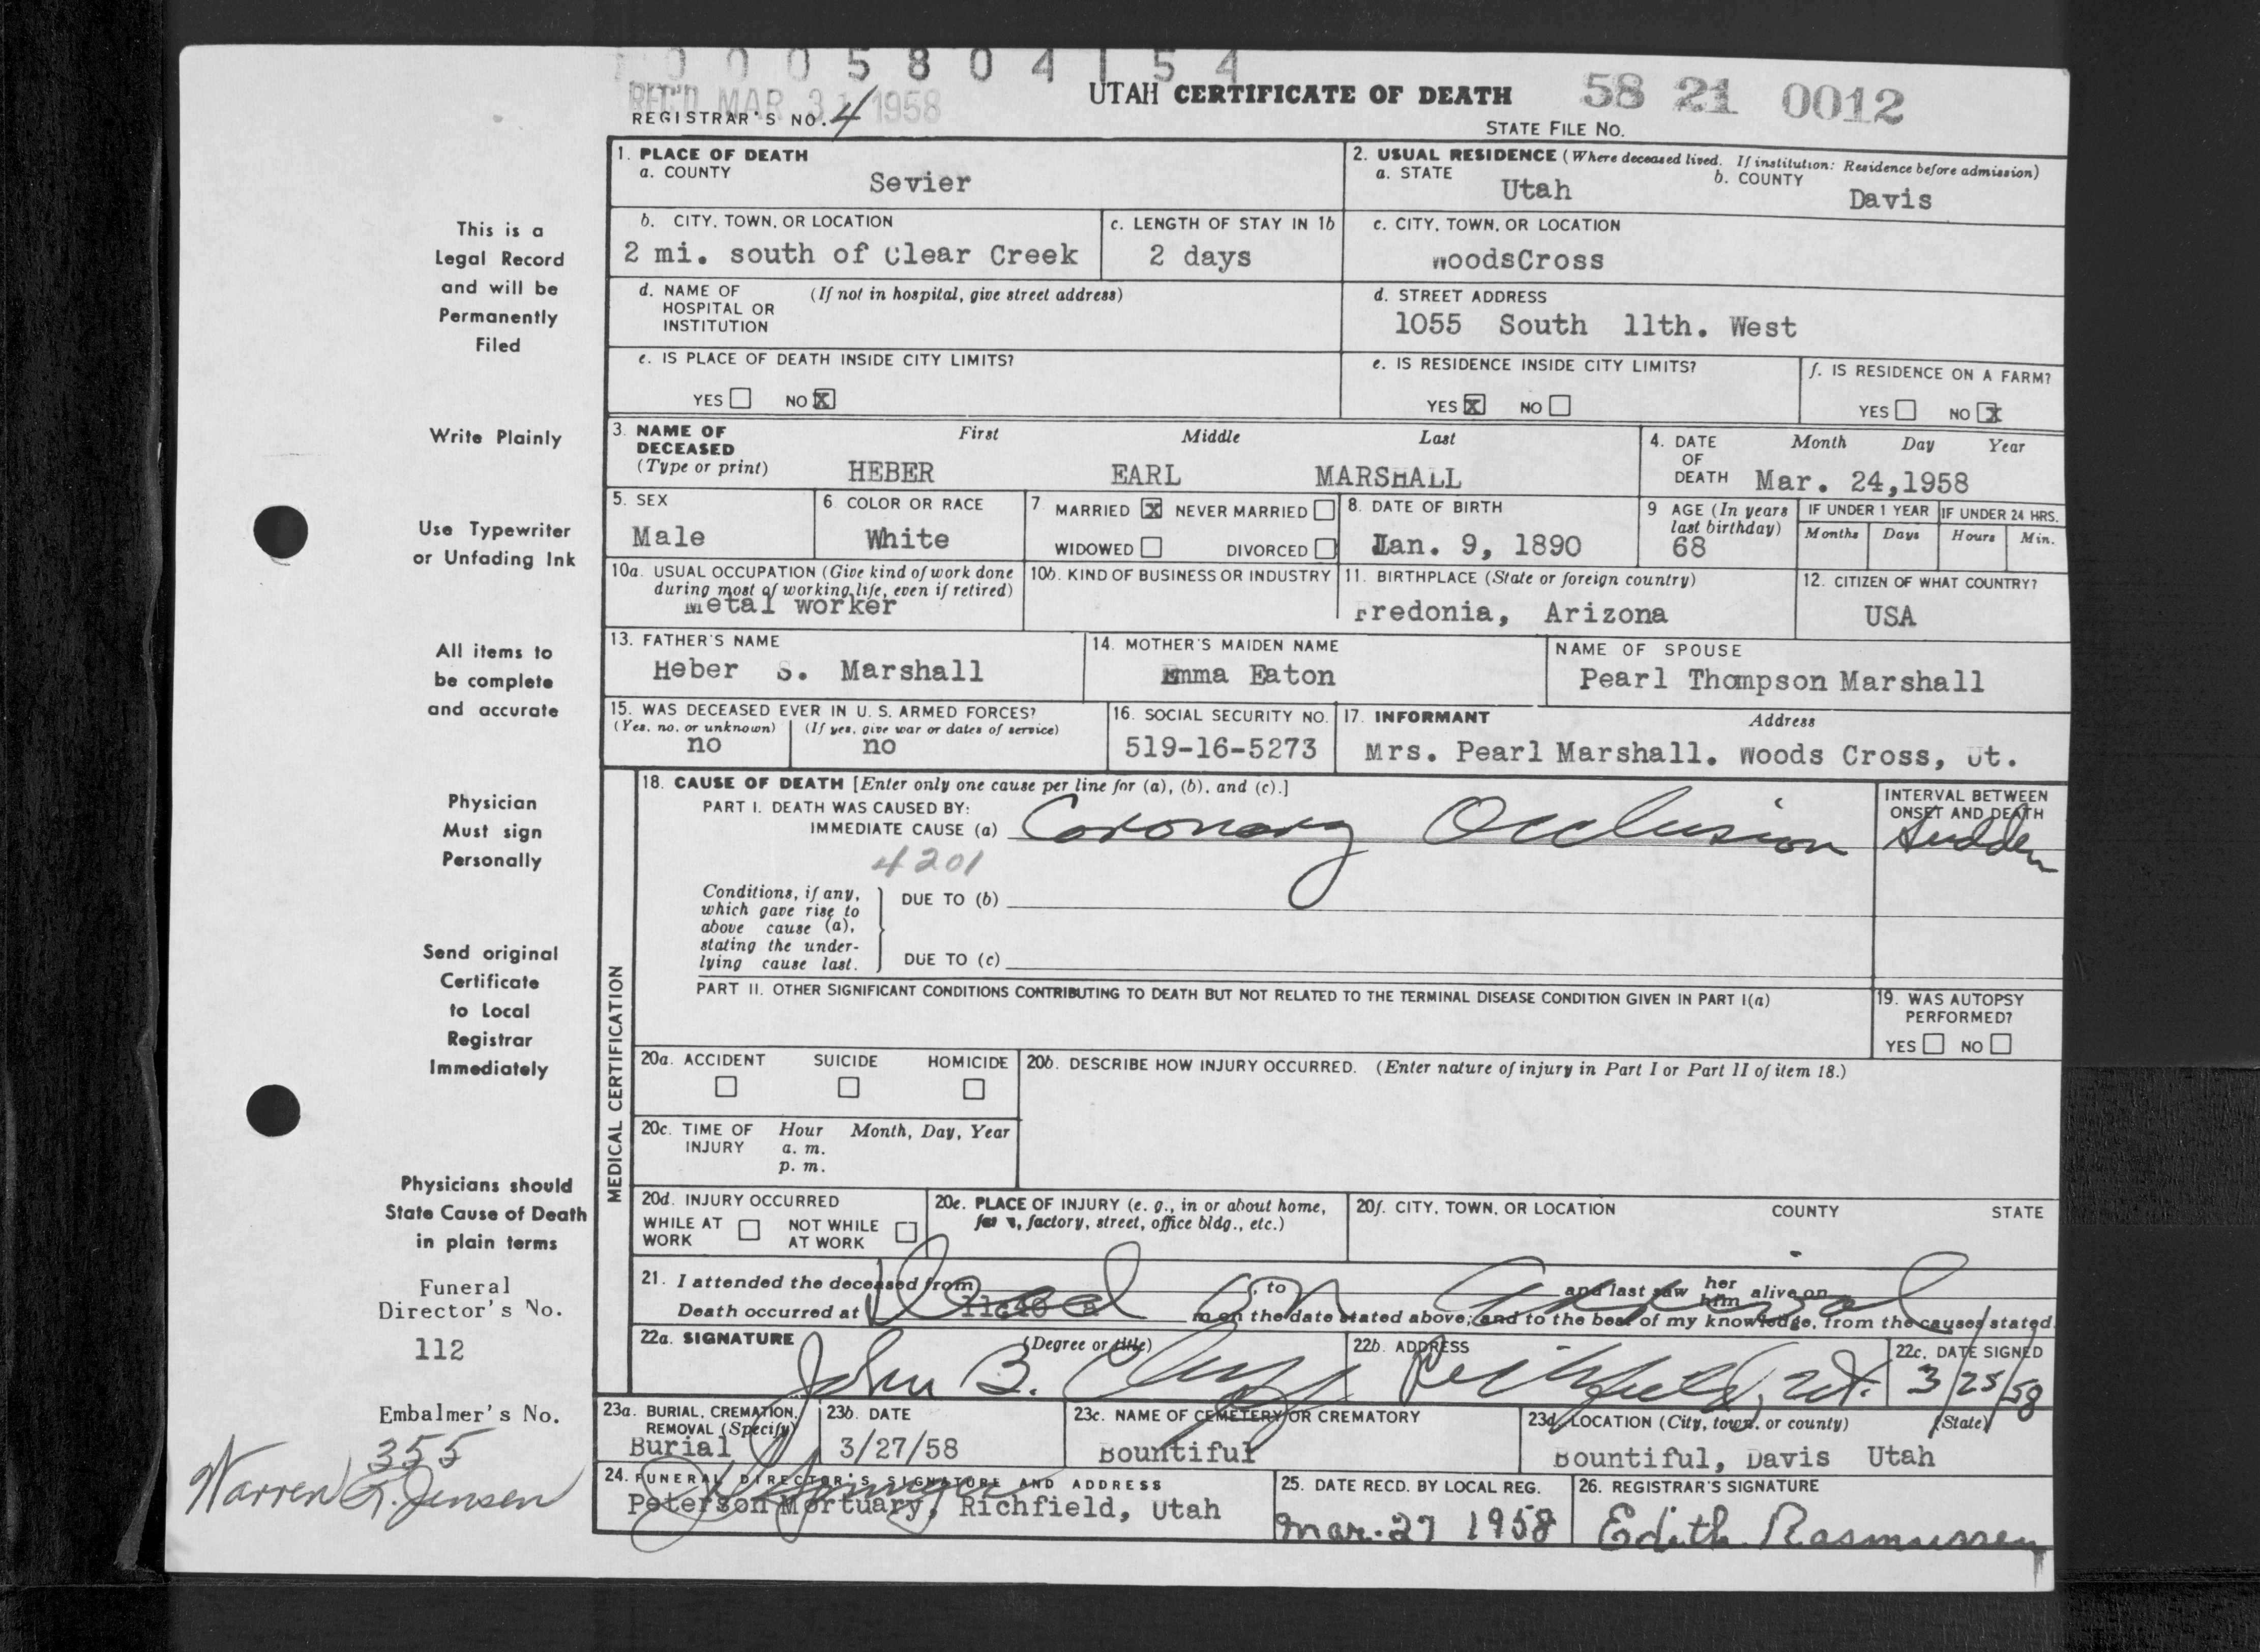 0 0 0 5 8 0 4 1 5 4
REC'D MAR 31 1958
UTAH CERTIFICATE OF DEATH
58 21 0012
REGISTRAR'S NO. 4
STATE FILE NO.
This is a
Legal Record
and will be
Permanently
Filed
Write Plainly
Use Typewriter
or Unfading Ink
All items to
be complete
and accurate
Physician
Must sign
Personally
Send original
Certificate
to Local
Registrar
Immediately
Physicians should
State Cause of Death
in plain terms
Funeral
Director's No.
112
Embalmer's No.
355
Warren L. Jensen
1. PLACE OF DEATH
a. COUNTY
Sevier
2. USUAL RESIDENCE (Where deceased lived. If institution: Residence before admission)
a. STATE
Utah
b. COUNTY
Davis
b. CITY, TOWN, OR LOCATION
2 mi. south of Clear Creek
c. LENGTH OF STAY IN 1b
2 days
c. CITY, TOWN, OR LOCATION
WoodsCross
d. NAME OF HOSPITAL OR INSTITUTION
(If not in hospital, give street address)
d. STREET ADDRESS
1055 South 11th. West
e. IS PLACE OF DEATH INSIDE CITY LIMITS?
YES NO X
e. IS RESIDENCE INSIDE CITY LIMITS?
YES X NO
f. IS RESIDENCE ON A FARM?
YES NO X
3. NAME OF DECEASED
(Type or print)
First Middle Last
HEBER EARL MARSHALL
4. DATE OF DEATH
Month Day Year
Mar. 24,1958
5. SEX
Male
6. COLOR OR RACE
White
7. MARRIED X NEVER MARRIED
WIDOWED DIVORCED
8. DATE OF BIRTH
Jan. 9, 1890
9. AGE (In years last birthday)
68
IF UNDER 1 YEAR
Months Days
IF UNDER 24 HRS.
Hours Min.
10a. USUAL OCCUPATION (Give kind of work done
during most of working life, even if retired)
Metal worker
10b. KIND OF BUSINESS OR INDUSTRY
11. BIRTHPLACE (State or foreign country)
Fredonia, Arizona
12. CITIZEN OF WHAT COUNTRY?
USA
13. FATHER'S NAME
Heber S. Marshall
14. MOTHER'S MAIDEN NAME
Emma Eaton
NAME OF SPOUSE
Pearl Thompson Marshall
15. WAS DECEASED EVER IN U. S. ARMED FORCES?
(Yes, no, or unknown) (If yes, give war or dates of service)
no no
16. SOCIAL SECURITY NO.
519-16-5273
17. INFORMANT Address
Mrs. Pearl Marshall. Woods Cross, Ut.
MEDICAL CERTIFICATION
18. CAUSE OF DEATH [Enter only one cause per line for (a), (b), and (c).]
PART I. DEATH WAS CAUSED BY:
IMMEDIATE CAUSE (a) Coronary Occlusion
INTERVAL BETWEEN ONSET AND DEATH
Sudden
4201
Conditions, if any,
which gave rise to
above cause (a),
stating the under-
lying cause last.
DUE TO (b)
DUE TO (c)
PART II. OTHER SIGNIFICANT CONDITIONS CONTRIBUTING TO DEATH BUT NOT RELATED TO THE TERMINAL DISEASE CONDITION GIVEN IN PART I(a)
19. WAS AUTOPSY PERFORMED?
YES NO
20a. ACCIDENT SUICIDE HOMICIDE
20b. DESCRIBE HOW INJURY OCCURRED. (Enter nature of injury in Part I or Part II of item 18.)
20c. TIME OF INJURY
Hour Month, Day, Year
a. m.
p. m.
20d. INJURY OCCURRED
WHILE AT WORK NOT WHILE AT WORK
20e. PLACE OF INJURY (e. g., in or about home,
farm, factory, street, office bldg., etc.)
20f. CITY, TOWN, OR LOCATION COUNTY STATE
21. I attended the deceased from , to and last saw her him alive on
Dead on arrival
Death occurred at 11:40 a m on the date stated above; and to the best of my knowledge, from the causes stated.
22a. SIGNATURE (Degree or title)
John B.
22b. ADDRESS
Richfield, Ut.
22c. DATE SIGNED
3/25/58
23a. BURIAL, CREMATION, REMOVAL (Specify)
Burial
23b. DATE
3/27/58
23c. NAME OF CEMETERY OR CREMATORY
Bountiful
23d. LOCATION (City, town, or county) (State)
Bountiful, Davis Utah
24. FUNERAL DIRECTOR'S SIGNATURE AND ADDRESS
Peterson Mortuary, Richfield, Utah
25. DATE RECD. BY LOCAL REG.
Mar. 27 1958
26. REGISTRAR'S SIGNATURE
Edith Rasmussen